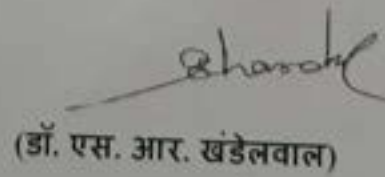 (डॉ. एस. आर. खंडेलवाल)